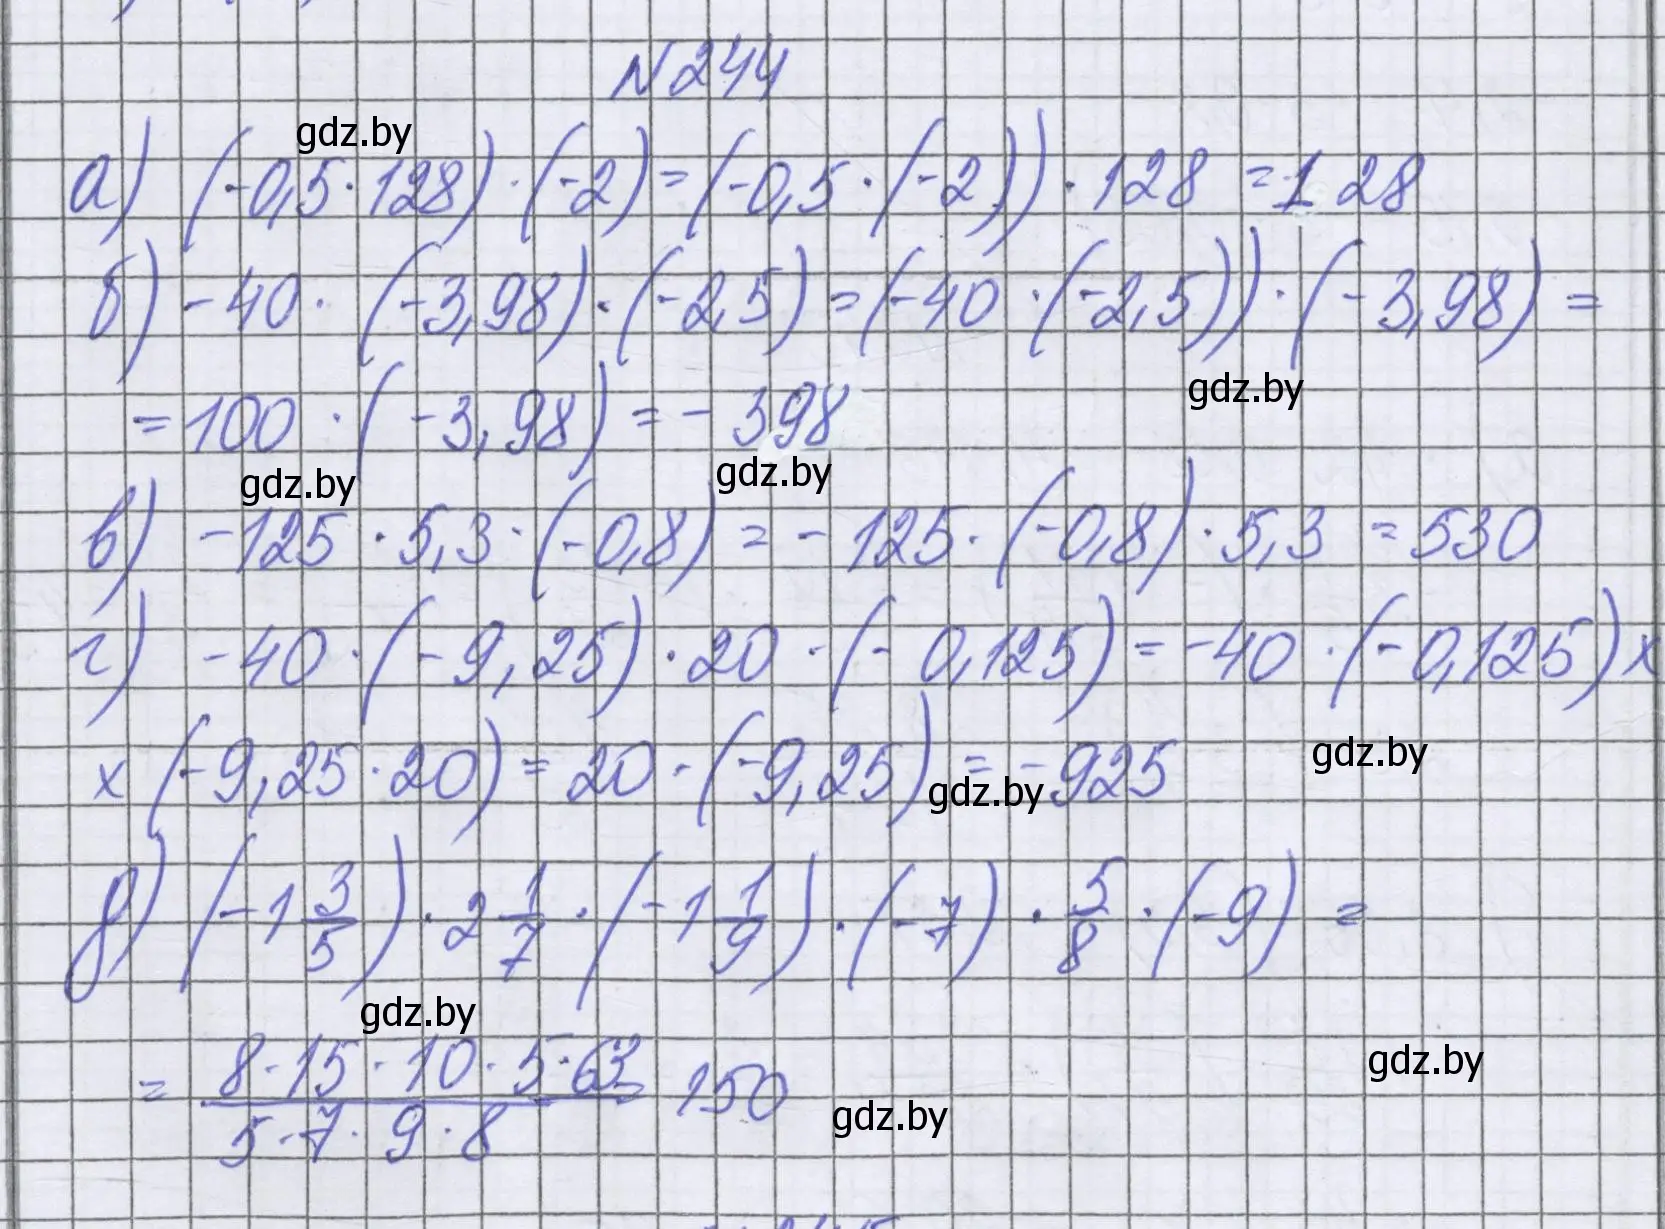 N244
gdz.by
а) (-0,5·128)·(-2)=(-0,5·(-2))·128=128
б) -40·(-3,98)·(-2,5)=(-40·(-2,5))·(-3,98)=
gdz.by
=100·(-3,98)=-398
gdz.by
gdz.by
в) -125·5,3·(-0,8)=-125·(-0,8)·5,3=530
г) -40·(-9,25)·20·(-0,125)=-40·(-0,125)х
gdz.by
х(-9,25·20)=20·(-9,25)=-925
gdz.by
д) (-1 3/5)·2 1/7·(-1 1/9)·(-7)·5/8·(-9)=
gdz.by
gdz.by
= 8·15·10·5·63/5·7·9·8 = 150
gdz.by